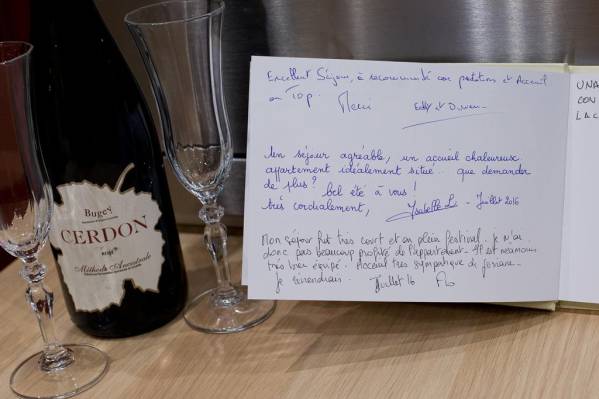 Bugey
CERDON
ROSÉ
Méthode Ancestrale
Excellent Séjour, à recommander car prestations et Accueil
au Top.
Merci
Un séjour agréable, un accueil chaleureux
appartement idéalement situé... que demander
de plus? bel été à vous!
très cordialement, Isabelle L. - Juillet 2016
Mon séjour fut très court et en plein festival. Je n'ai
donc pas beaucoup profité de l'appartement. Il est néanmoins
très bien équipé. Accueil très sympatique de Josiane.
Je reviendrais. Juillet 16
UNA
CON
LA C